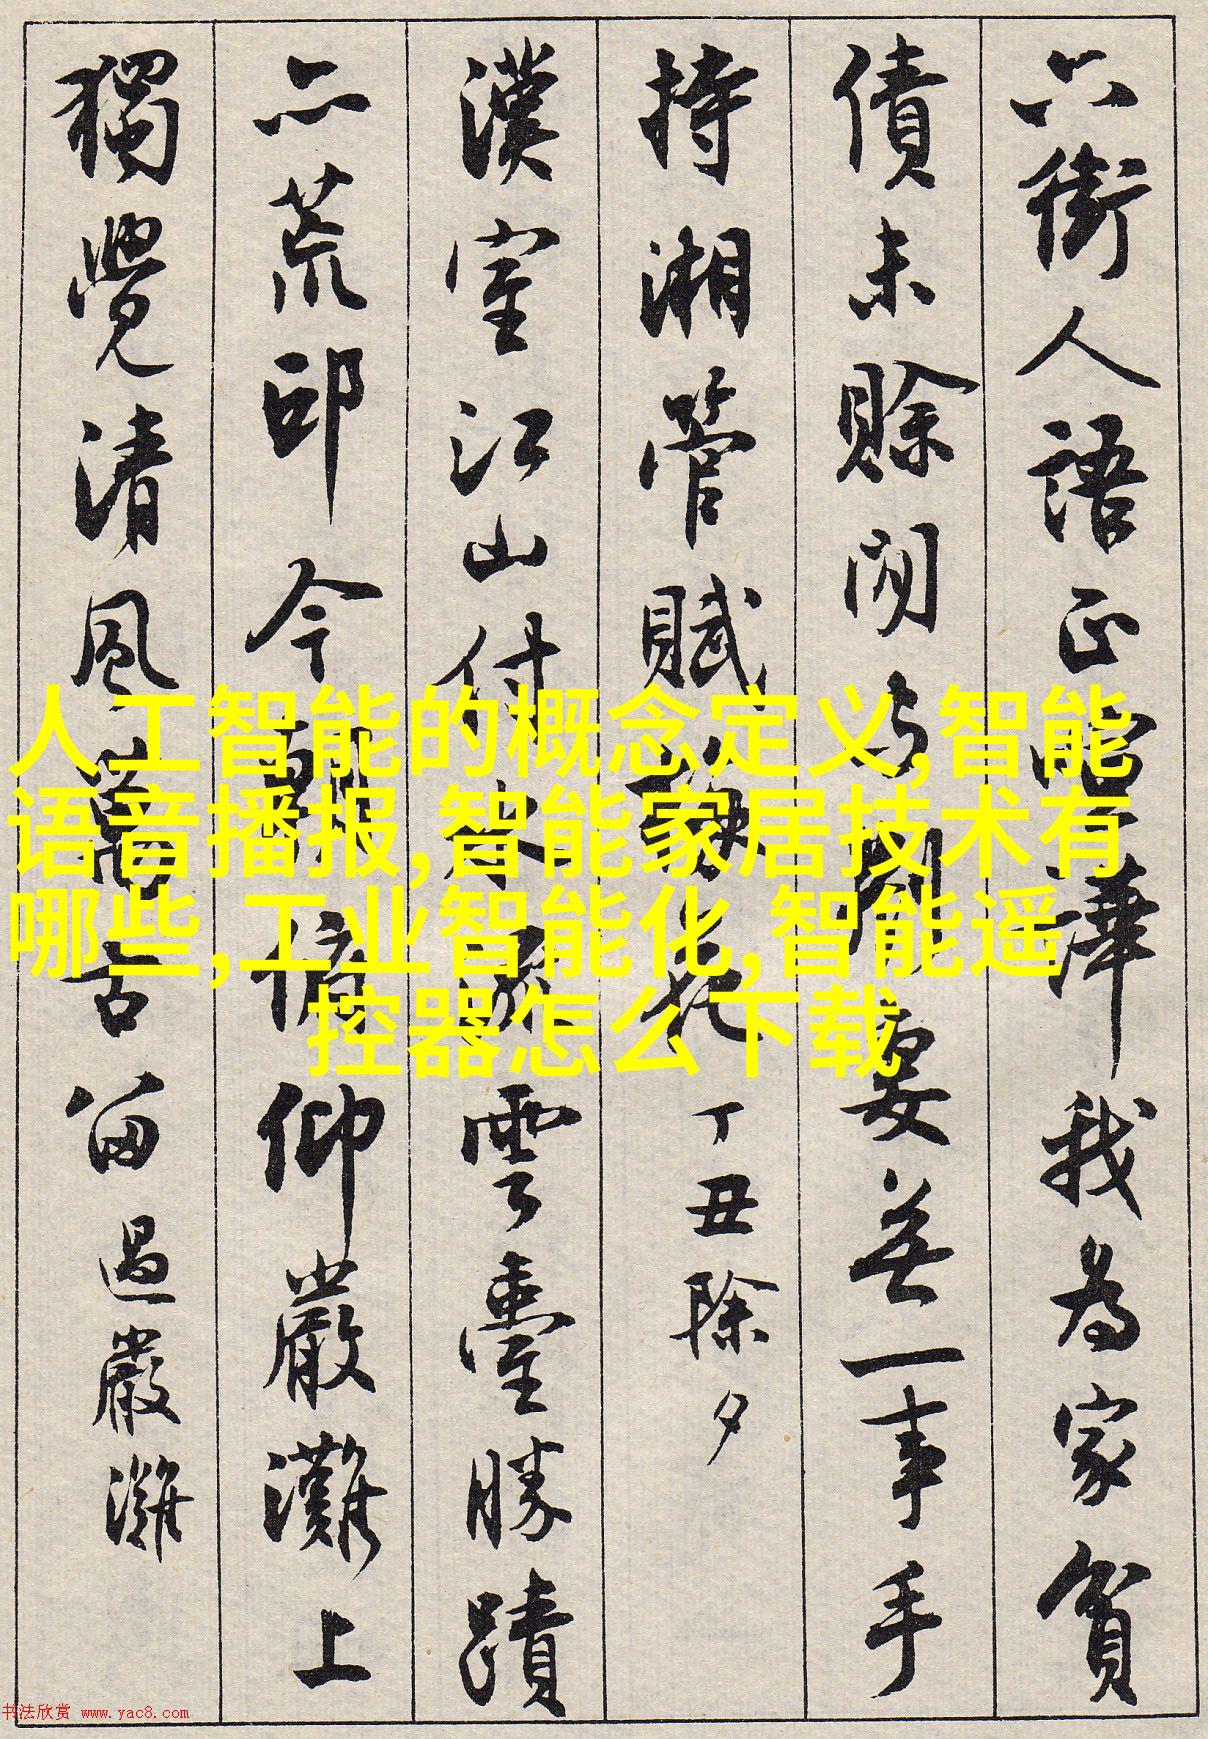 六街人語正喧譁我為家貧
債未賒閒與劉晏無一事手
持湘管賦梅花丁丑除夕
漢室江山付水流雲臺勝蹟
亦荒邱今朝俯仰嚴灘上
獨覺清風萬古留過嚴灘
人工智能的概念定义,智能
语音播报,智能家居技术有
哪些,工业智能化,智能遥
控器怎么下载
书法欣赏 www.yac8.com